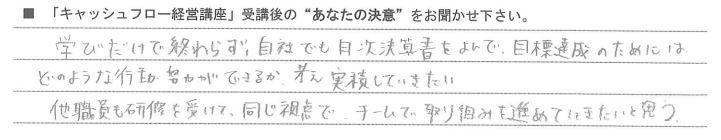 ■ 「キャッシュフロー経営講座」受講後の“あなたの決意”をお聞かせ下さい。
学びだけで終わらず、自社でも月次決算書をよんで、目標達成のためには
どのような行動、努力ができるか、考え実積していきたい
他職員も研修を受けて、同じ視点で、チームで取り組みを進めていきたいと思う。